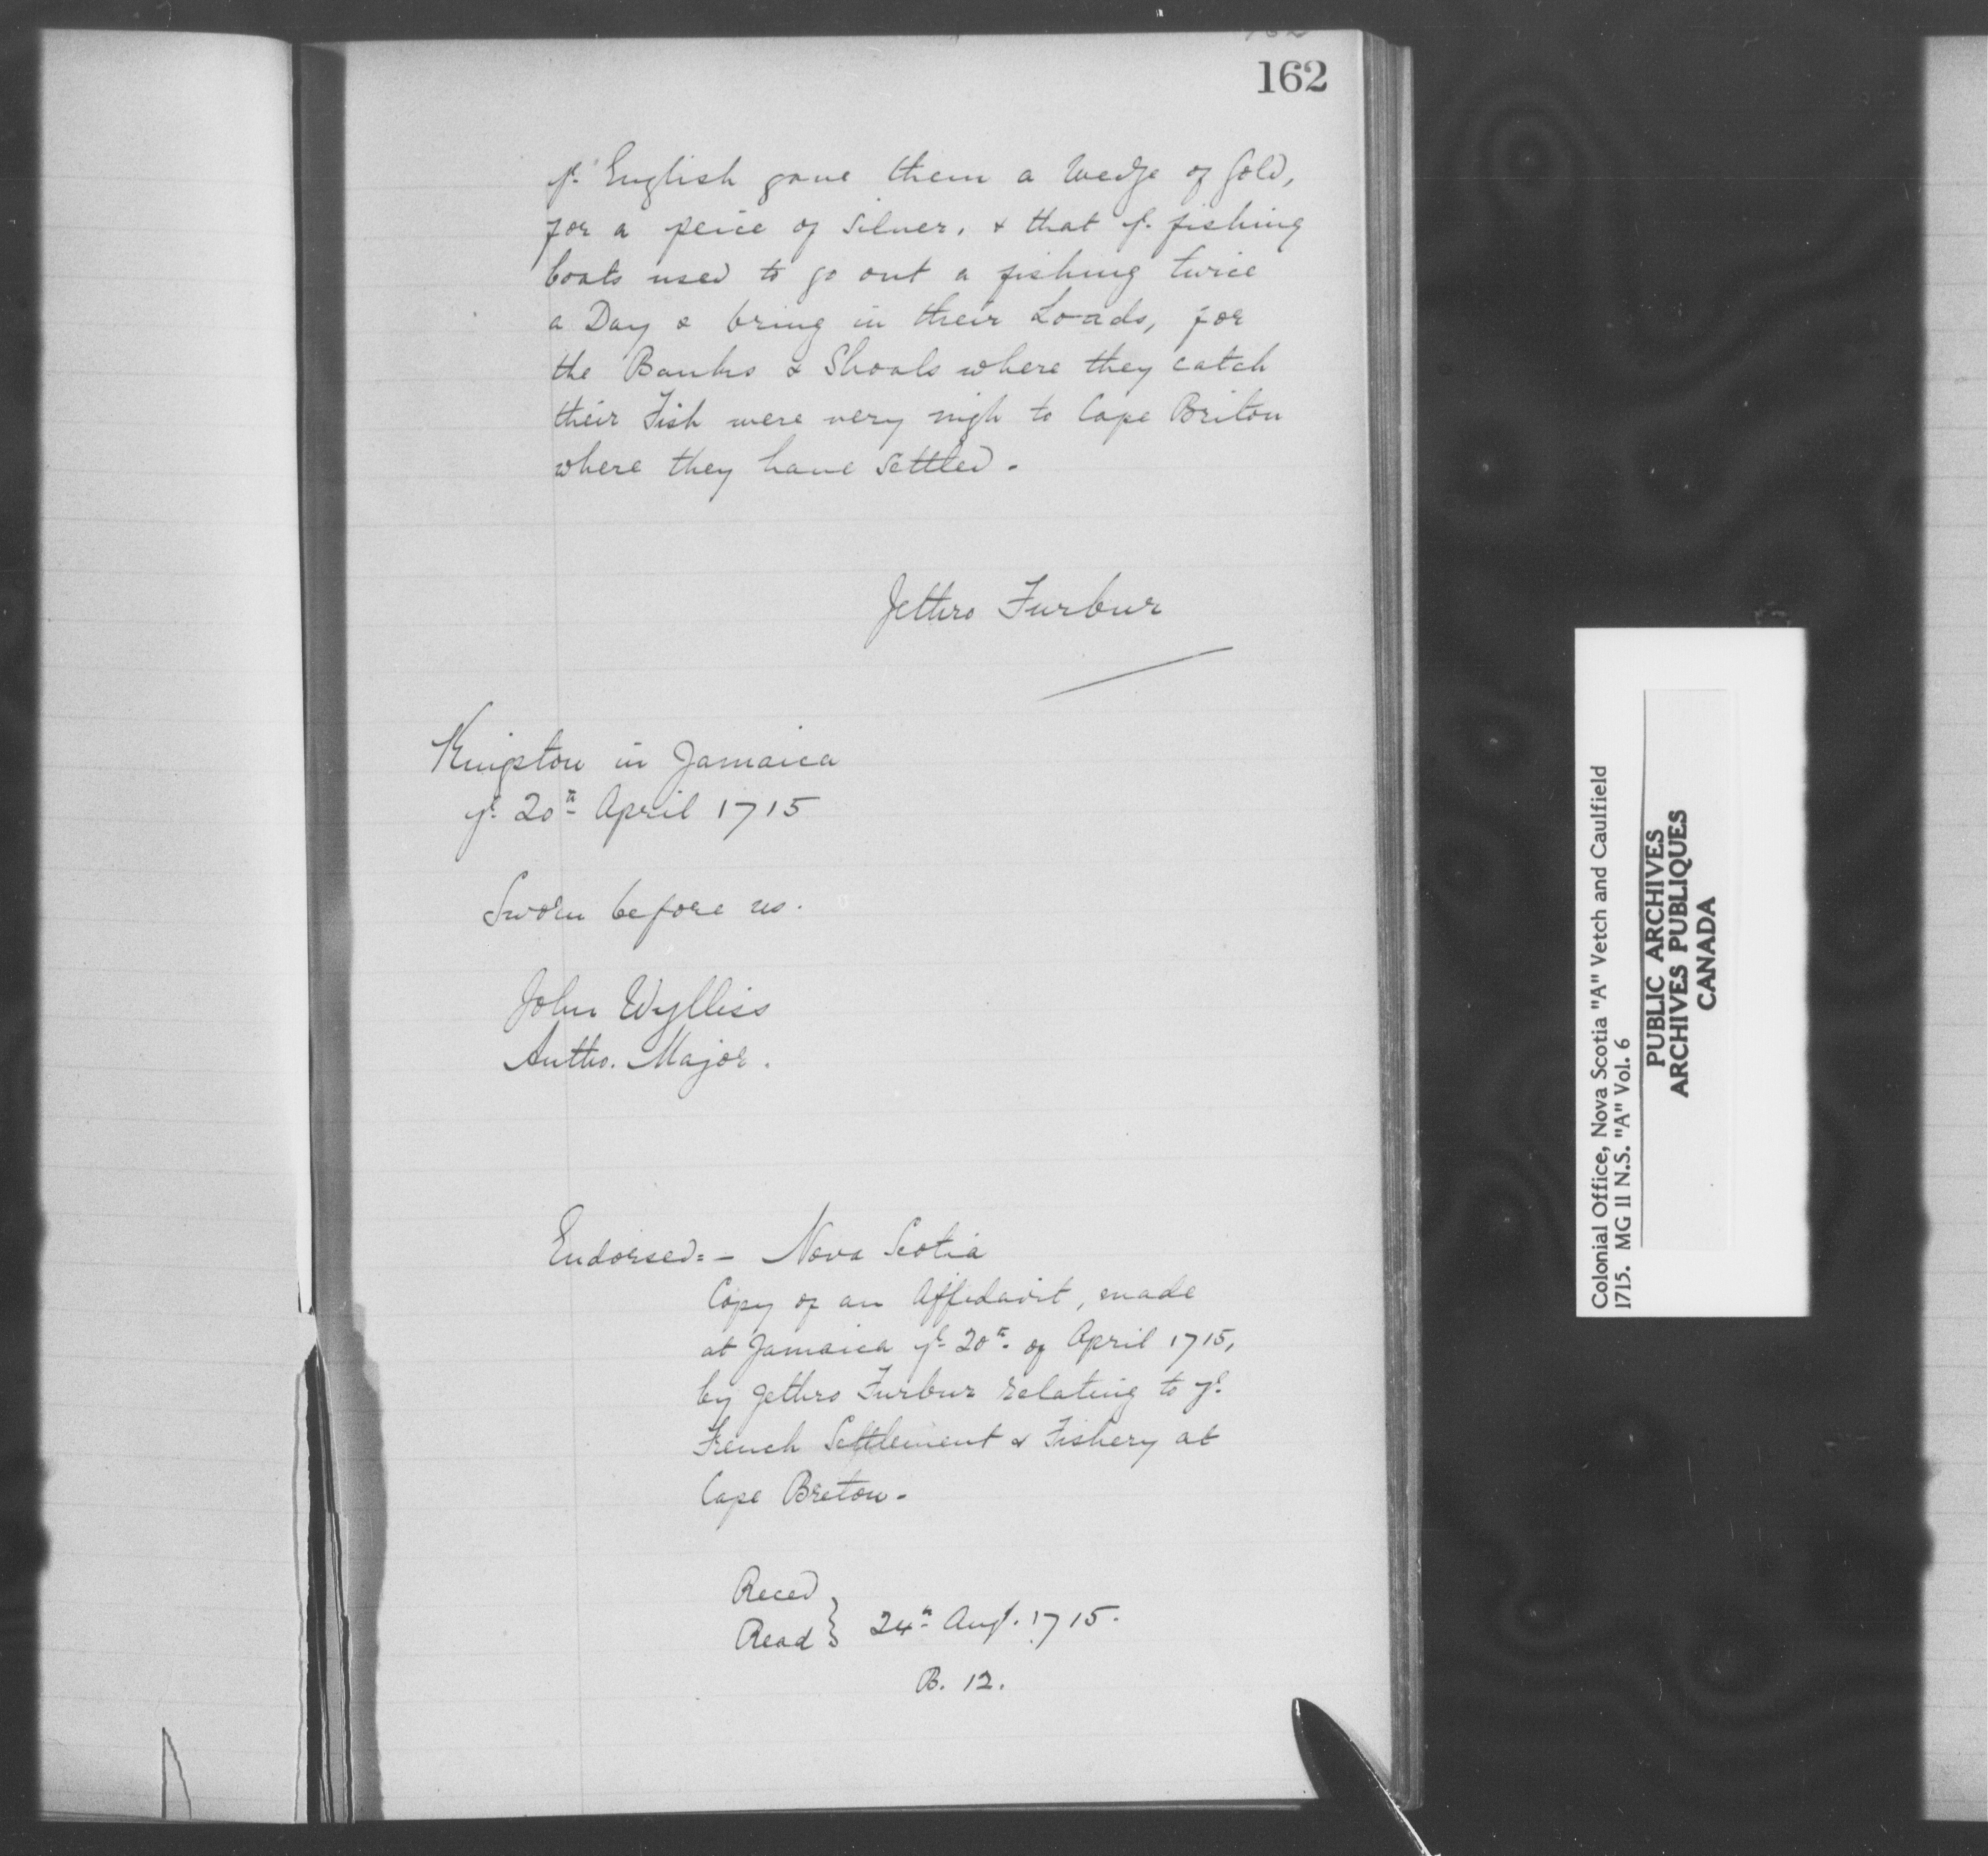 162
ye. English gave them a Wedge of Gold,
for a peice of Silver, & that ye. fishing
boats used to go out a fishing twice
a Day & bring in their Loads, for
the Banks & Shoals where they catch
their Fish were very nigh to Cape Briton
where they have settled.
Jethro Furbur
Kingston in Jamaica
ye. 20th April 1715
Sworn before us.
John Wylliss
Antho. Major.
Endorsed:- Nova Scotia
Copy of an Affidavit, made
at Jamaica ye. 20th. of April 1715,
by Jethro Furbur relating to ye.
French Settlement & Fishery at
Cape Breton.
Reced
Read } 24th Augt. 1715.
B. 12.
Colonial Office, Nova Scotia "A" Vetch and Caulfield
1715. MG 11 N.S. "A" Vol. 6
PUBLIC ARCHIVES
ARCHIVES PUBLIQUES
CANADA